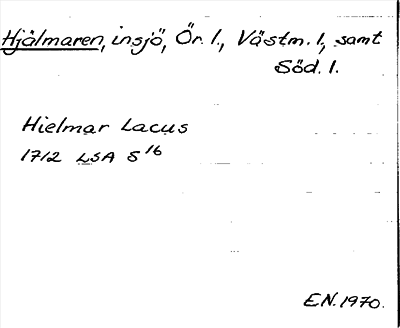 Hjälmaren, insjö, Ör. l., Västm. l, samt
Söd. l.
Hielmar Lacus
1712 LSA S 16
E.N. 1970.